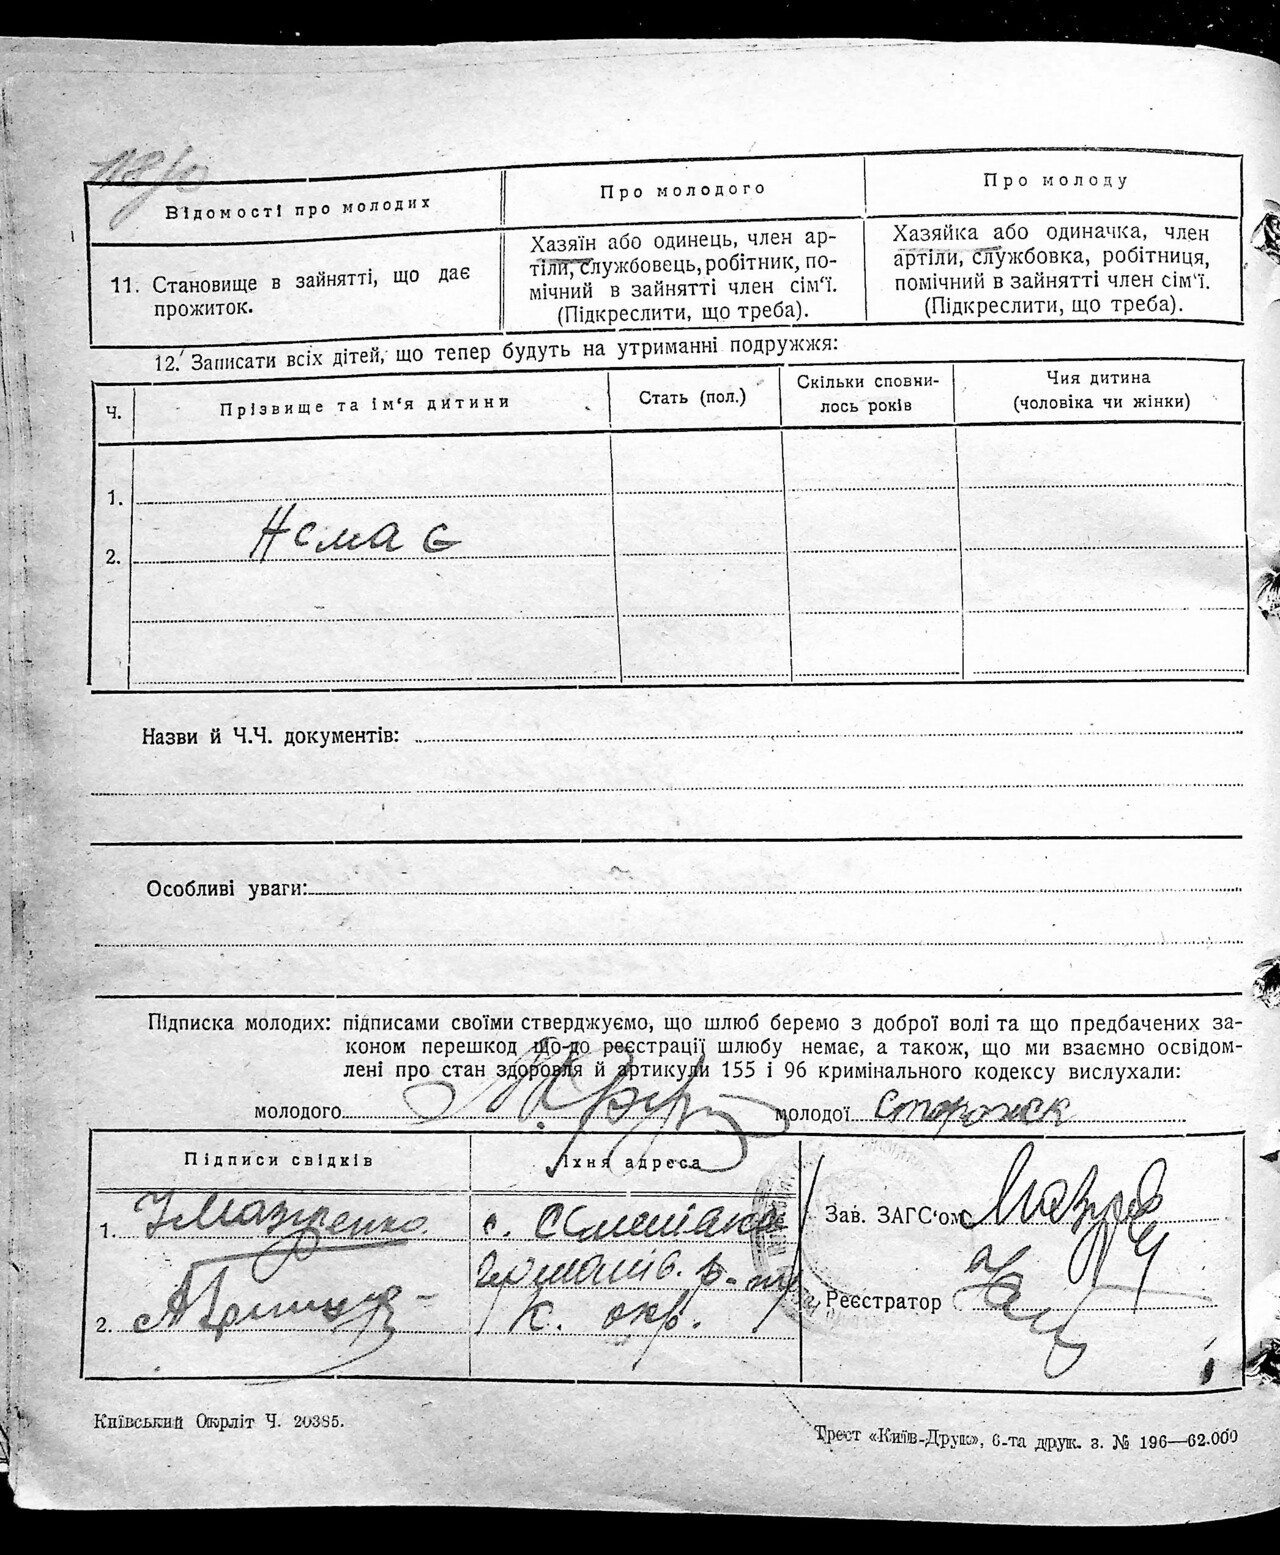 Відомості про молодих
Про молодого
Про молоду
11. Становище в зайнятті, що дає
прожиток.
Хазяїн або одинець, член ар-
тіли, службовець, робітник, по-
мічний в зайнятті член сім'ї.
(Підкреслити, що треба).
Хазяйка або одиначка, член
артіли, службовка, робітниця,
помічний в зайнятті член сім'ї.
(Підкреслити, що треба).
12. Записати всіх дітей, що тепер будуть на утриманні подружжя:
Ч.
Прізвище та ім'я дитини
Стать (пол.)
Скільки сповни-
лось років
Чия дитина
(чоловіка чи жінки)
1.
Немає
2.
Назви й Ч.Ч. документів:
Особливі уваги:
Підписка молодих: підписами своїми стверджуємо, що шлюб беремо з доброї волі та що предбачених за-
коном перешкод що-до реєстрації шлюбу немає, а також, що ми взаємно освідом-
лені про стан здоровля й артикули 155 і 96 кримінального кодексу вислухали:
молодого
молодої Сторожек
Підписи свідків
Їхня адреса
1. Мазуренко
с.
Зав. ЗАГС'ом
р-ну
Реєстратор
2.
К. окр.
Київський Окрліт Ч. 20385.
Трест «Київ-Друк», 6-та друк. з. № 196—62.000